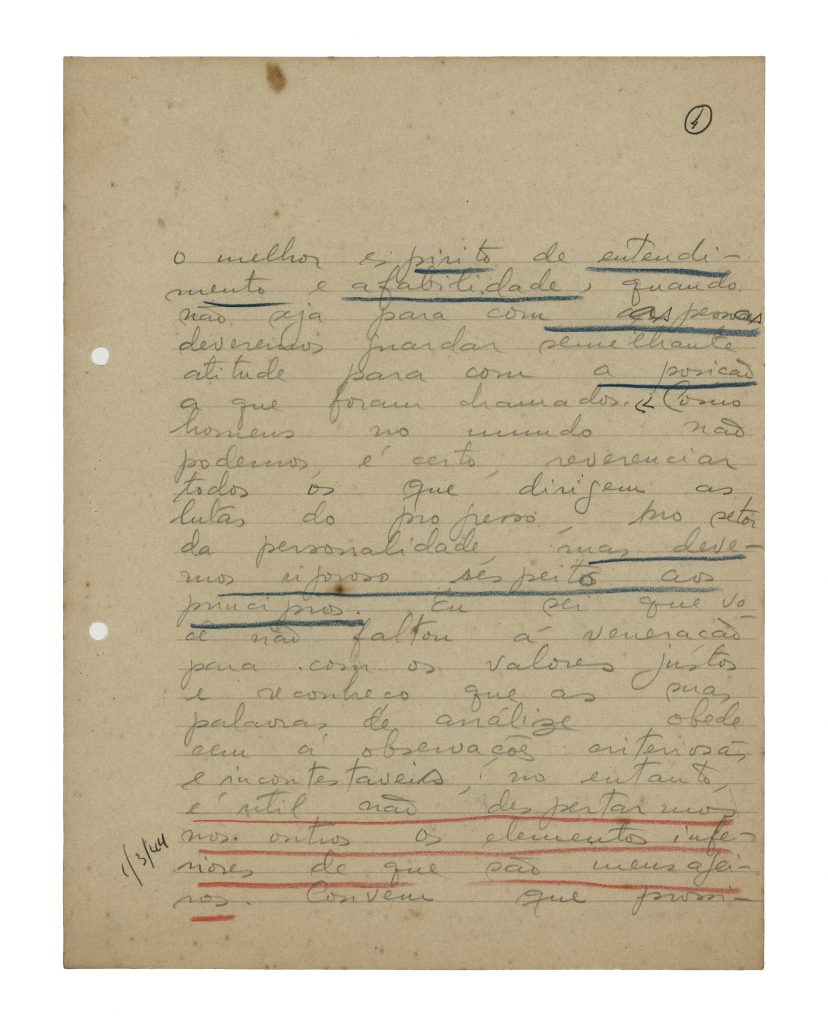 4
o melhor espirito de entendi-
mento e afabilidade, quando
não seja para com as pessoas
deveremos guardar semelhante
atitude para com a posicão
a que foram chamados. Como
homens no mundo não
podemos, é certo, reverenciar
todos os que dirigem as
lutas do progresso, no setor
da personalidade, mas deve-
mos rigoroso respeito aos
principios. Eu sei que vo-
cê não faltou á veneracão
para com os valores justos
e reconheço que as suas
palavras de análize obede
cem á observações criteriosas
e incontestaveis, no entanto,
é útil não despertarmos
nos outros os elementos infe-
riores de que são mensagei-
ros. Convem que prossi-
1/3/44